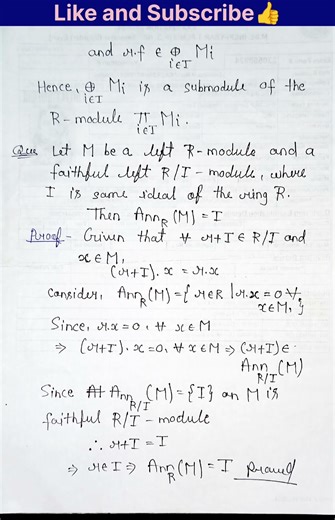 Like and Subscribe👍
and r.f ∈ ⊕ Mi
i∈I
Hence, ⊕ Mi is a submodule of the
i∈I
R-module ∏ Mi.
i∈I
Que Let M be a left R-module and a
faithful left R/I-module, where
I is some ideal of the ring R.
Then AnnR(M)=I
Proof- Given that ∀ r+I∈R/I and
x∈M,
(r+I).x = r.x
Consider, AnnR(M)={r∈R | r.x=0 ∀
x∈M,}
Since, r.x=0, ∀ x∈M
⇒ (r+I).x=0, ∀ x∈M ⇒ (r+I)∈
AnnR/I(M)
Since AnnR/I(M)={I} as M is
faithful R/I-module
∴ r+I=I
⇒ r∈I ⇒ AnnR(M)=I Proved